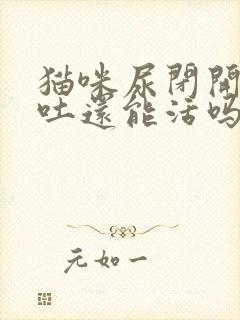 猫咪尿閉開
吐還能活嗎
元如一